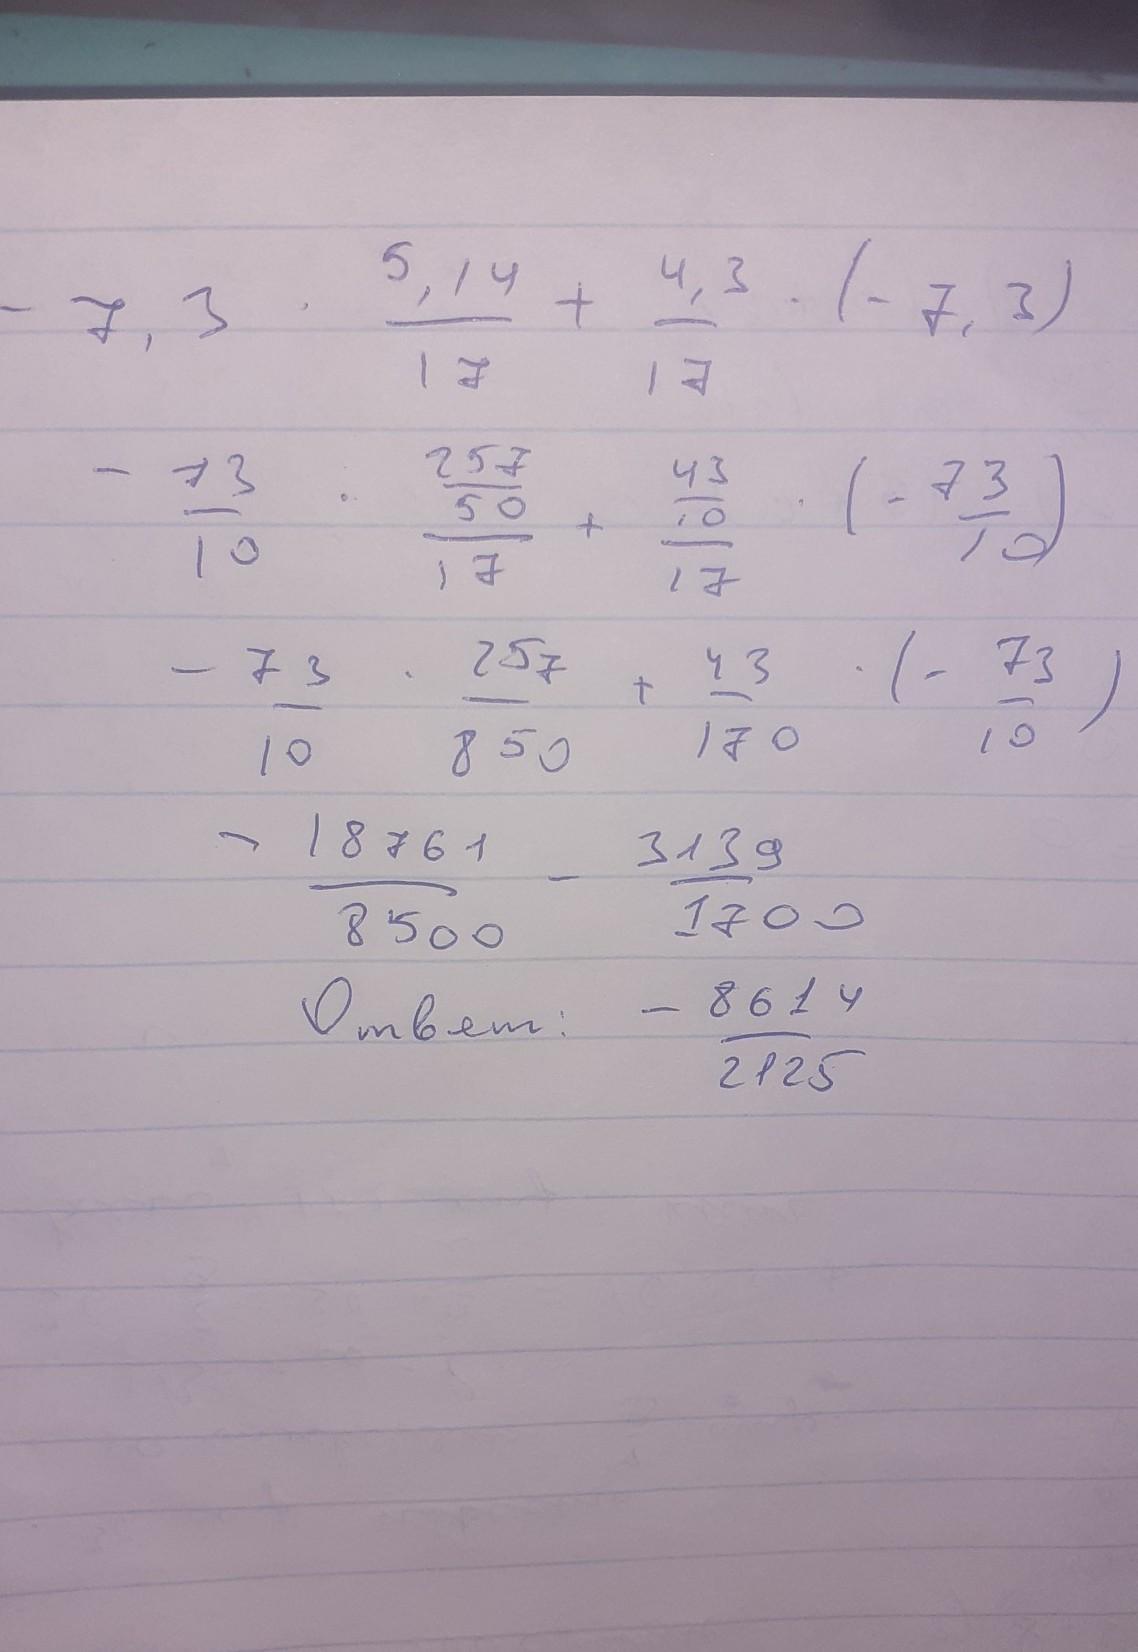 - 7,3 · 5,14/17 + 4,3/17 · (- 7,3)
- 73/10 · 257/50/17 + 43/10/17 · (- 73/10)
- 73/10 · 257/850 + 43/170 · (- 73/10)
- 18761/8500 - 3139/1700
Ответ: - 8614/2125